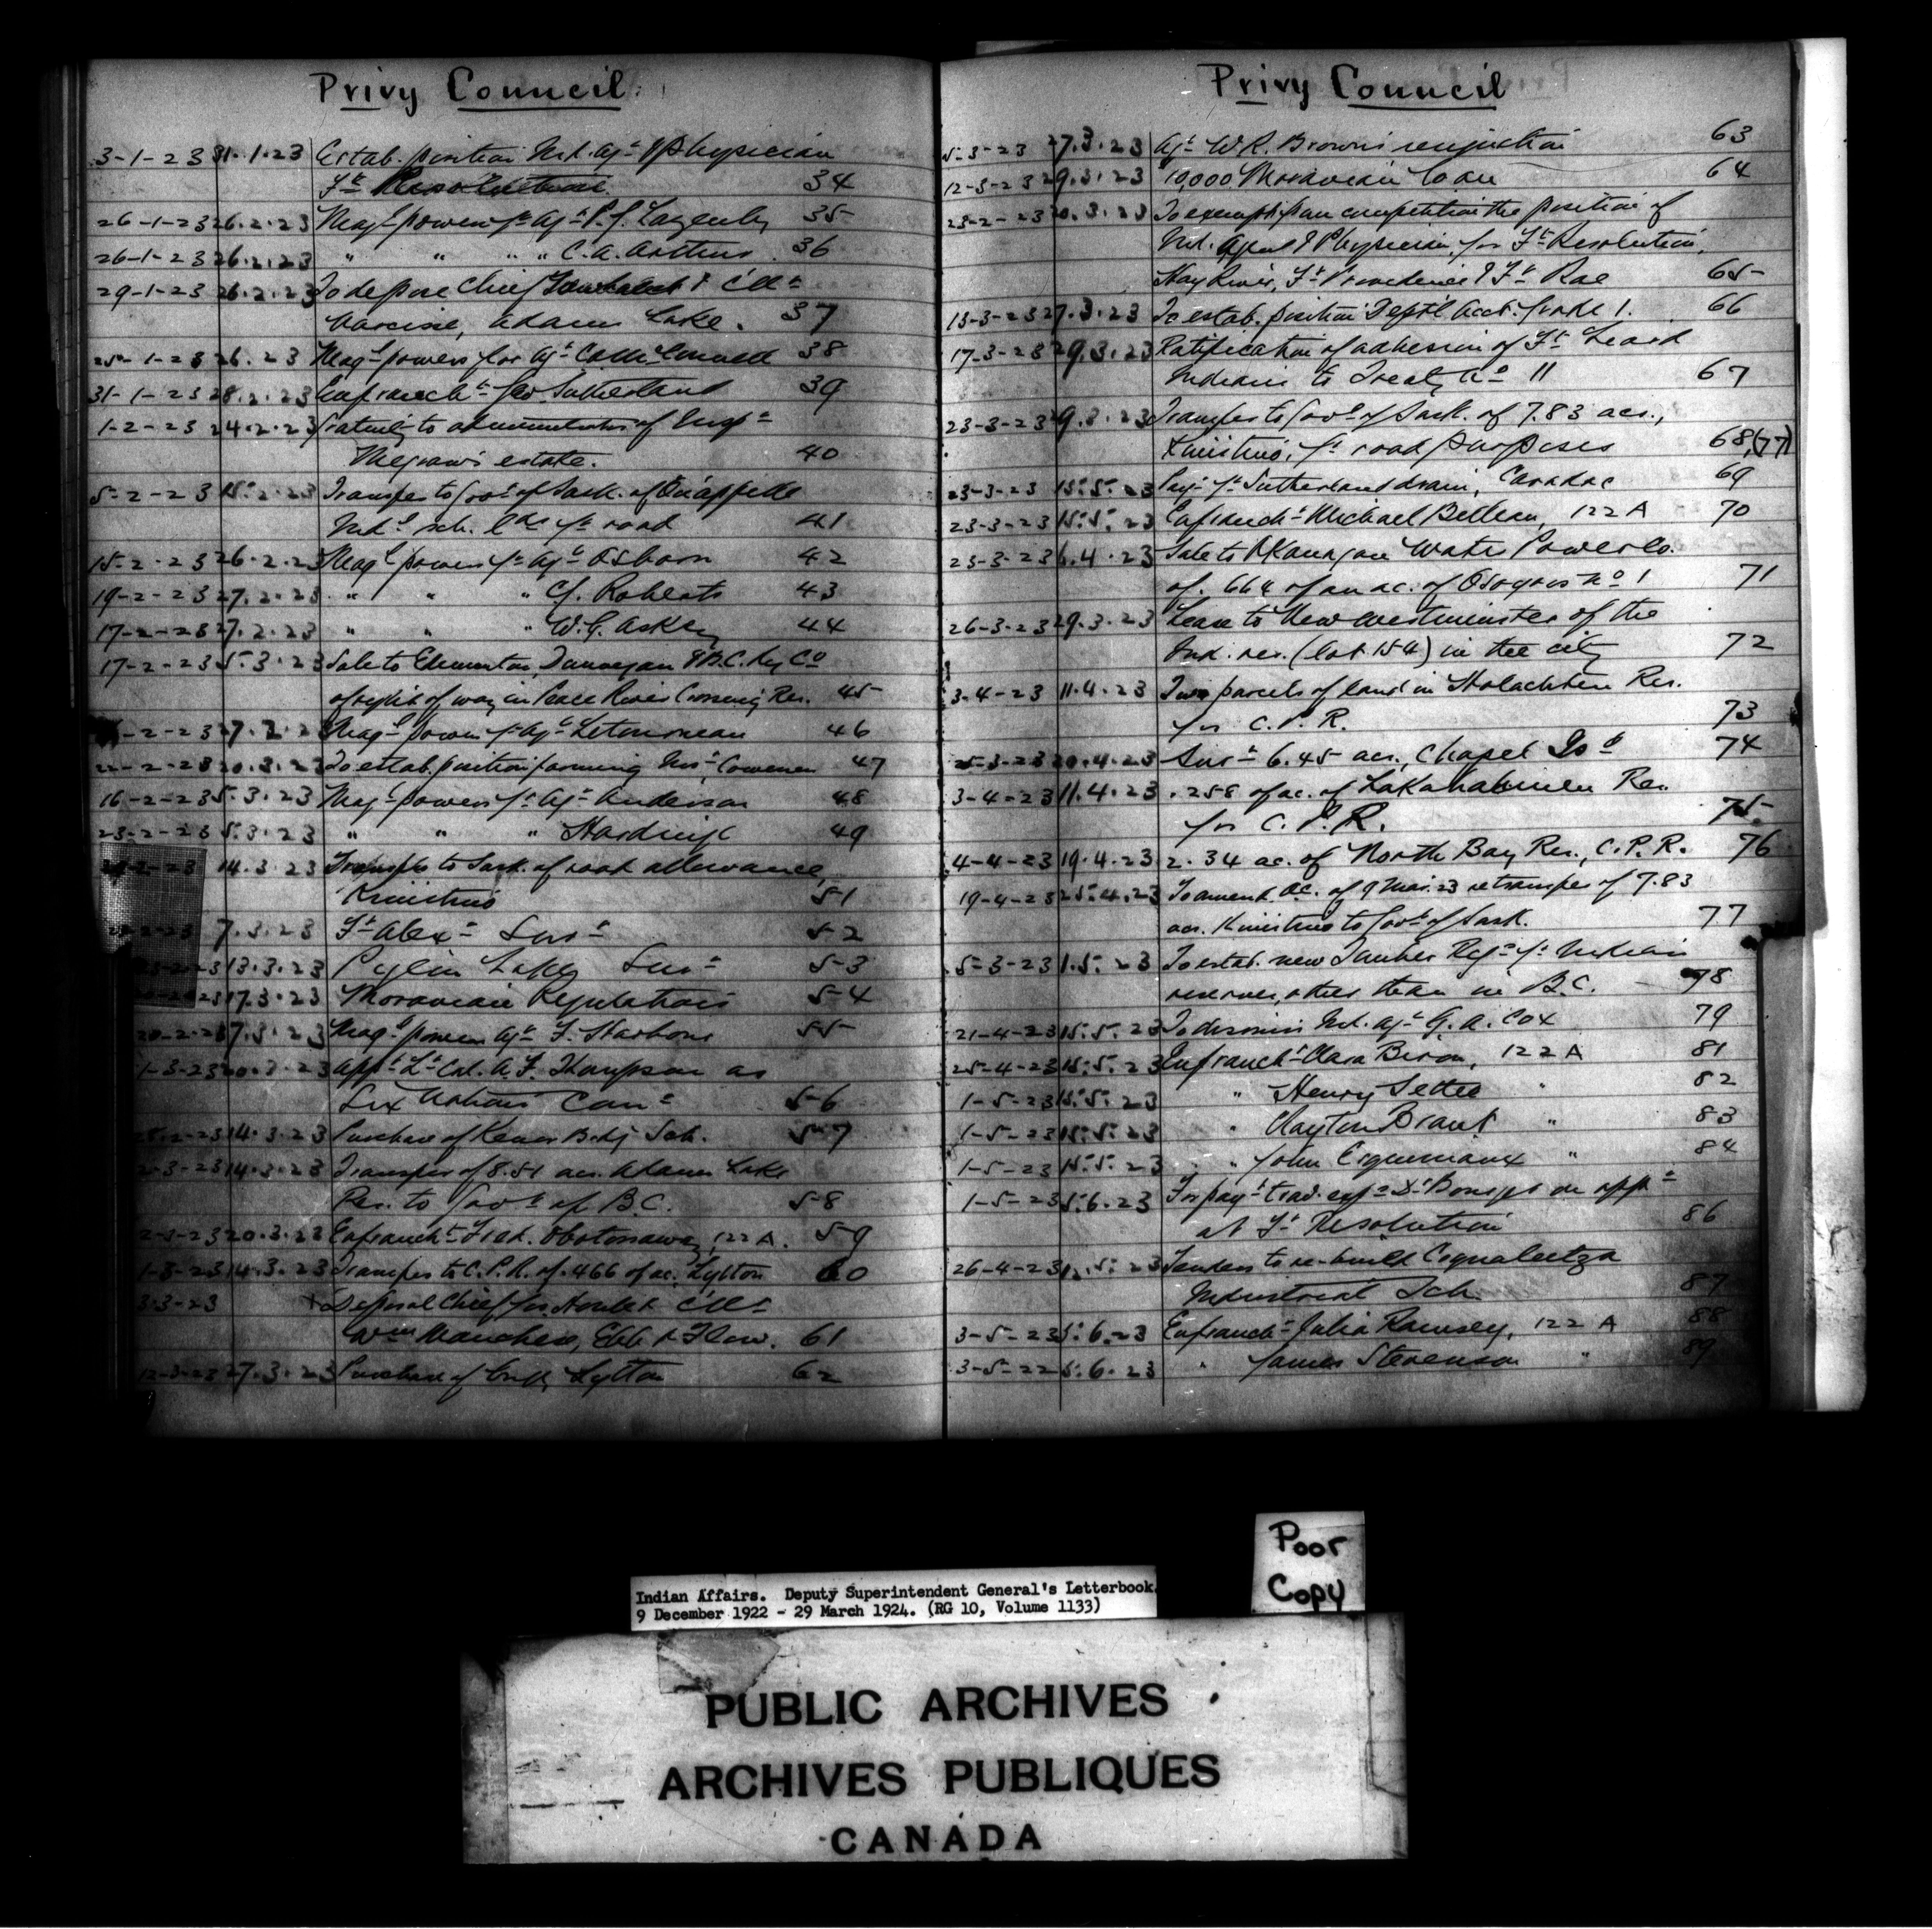 Privy Council
3-1-23 31.1.23 Estab. position Ind. Agt & Physician
Ft 34
26-1-23 26.2.23 Magl powers fr Agt P.J. Lazenby 35
26-1-23 26.2.23 " " " " C.A. 36
29-1-23 26.2.23 To depose Chief & Cllr
Narcisse, Adams Lake. 37
25-1-23 26. 23 Magl powers for Agt 38
31-1-23 28.2.23 Enfrancht Geo. Sutherland 39
1-2-23 24.2.23 Gratuity to administrators of
Megraw's estate. 40
5-2-23 15.2.23 Transfer to Govt of Sask. of Qu'appelle
Indl sch. lds fr road 41
15-2-23 26.2.23 Magl powers fr Agt Osborn 42
19-2-23 27.2.23 " " " C. Roberts 43
17-2-23 27.2.23 " " " W.G. Askey 44
17-2-23 5.3.23 Sale to Edmonton, Dunvegan & B.C. Ry Co
of right of way in Peace River Crossing Res. 45
-2-23 27.2.23 Magl powers fr Agt Letourneau 46
22-2-23 20.3.23 To estab. position farming Inst, 47
16-2-23 5.3.23 Magl powers fr Agt Anderson 48
23-2-23 5.3.23 " " " 49
14.3.23 Transfer to Sask. of road allowance,
Kinistino 51
7.3.23 Ft Alexr Surr 52
13.3.23 Lake Surr 53
17.3.23 Moravian Regulations 54
20-2-23 7.3.23 Magl powers Agt F. 55
1-3-23 20.3.23 Appt Lt Col. A.T. Thompson as
Six Nations Comr 56
28.2-23 14.3.23 Purchase of Kenora Bdg Sch. 57
2-3-23 14.3.23 Transfer of 8.51 acs. Adams Lake
Res. to Govt of B.C. 58
2-3-23 20.3.23 Enfrancht Fred. Obotossaway, 122 A. 59
1-3-23 14.3.23 Transfer to C.P.R. of .466 of ac. Lytton 60
3-3-23 + Deposal Chief & Cllr
Wm Manchese, Ebb & Flow. 61
12-3-23 27.3.23 Purchase of Lytton 62
Privy Council
5-3-23 27.3.23 Agt W.R. Brown's resignation 63
12-3-23 29.3.23 10,000 Moravian loan 64
23-2-23 20.3.23 To exempt from competition the position of
Ind. Agent & Physician for Ft Resolution,
Hay River, Ft Providence & Ft Rae 65
13-3-23 27.3.23 To estab. position Dept'l Acct. Grade 1. 66
17-3-23 29.3.23 Ratification of adhesion of Ft Liard
Indians to Treaty No 11 67
23-3-23 29.3.23 Transfer to Govt of Sask. of 7.83 acs.,
Kinistino, fr road purposes 68,(77)
23-3-23 15.5.23 Payt fr Sutherland drain, Caradoc 69
23-3-23 15.5.23 Enfrancht Michael Belleau, 122 A 70
23-3-23 6.4.23 Sale to Okanagan Water Power Co.
of .664 of an ac. of Osoyoos No 1 71
26-3-23 29.3.23 Lease to New Westminster of the
Ind. res. (lot 154) in the city 72
3-4-23 11.4.23 Two parcels of land in Holachten Res.
for C.P.R. 73
-3-23 20.4.23 Surr 6.45 acs., Chapel Isd 74
3-4-23 11.4.23 .258 of ac. of Lakahahmen Res.
for C.P.R. 75
4-4-23 19.4.23 2.34 ac. of North Bay Res., C.P.R. 76
19-4-23 25.4.23 To amend O.C. of 9 Mar. 23 re transfer of 7.83
acs. Kinistino to Govt of Sask. 77
5-3-23 1.5.23 To estab. new Timber Regs fr Indian
reserves, other than in B.C. 78
21-4-23 15.5.23 To dismiss Ind. Agt G.A. Cox 79
25-4-23 15.5.23 Enfrancht Clara Biron, 122 A 81
1-5-23 15.5.23 " Henry Settee " 82
1-5-23 15.5.23 " Clayton Brant " 83
1-5-23 15.5.23 " John Esquimaux " 84
1-5-23 5.6.23 For payt trav. exps Dr Bourget on appt
at Ft Resolution 86
26-4-23 1.5.23 Tenders to re-build Coqualeetza
Industrial Sch. 87
3-5-23 5.6.23 Enfrancht Julia Ramsey, 122 A 88
3-5-22 5.6.23 " James Stevenson " 89
Poor
Copy
Indian Affairs. Deputy Superintendent General's Letterbook.
9 December 1922 - 29 March 1924. (RG 10, Volume 1133)
PUBLIC ARCHIVES
ARCHIVES PUBLIQUES
CANADA